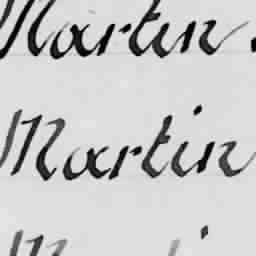 Martin.
Martin